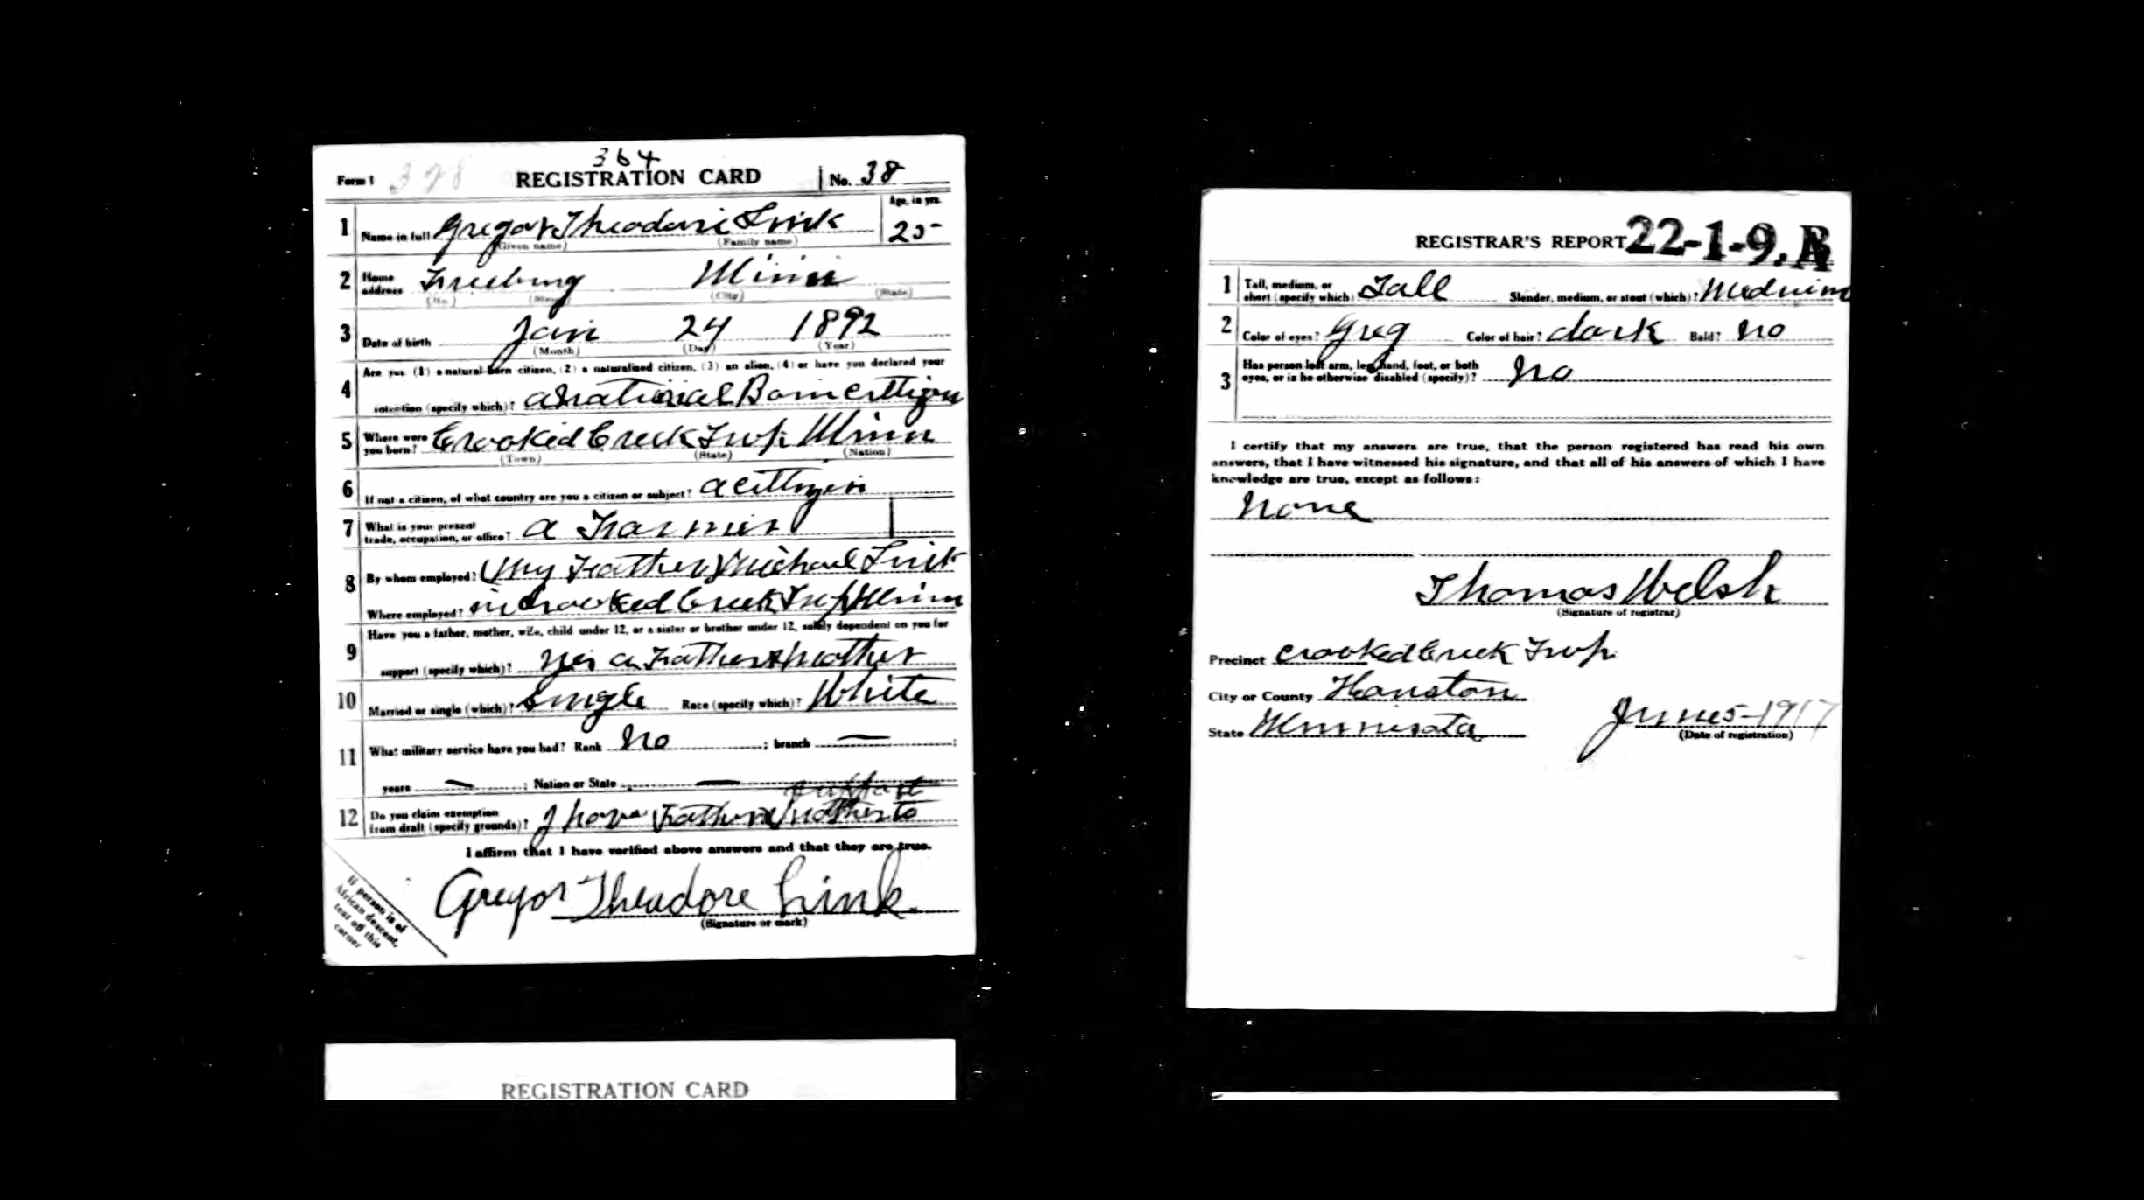 364
Form 1 398 REGISTRATION CARD No. 38
1 Name in full Gregor Theodore Link Age, in yrs. 25
(Given name) (Family name)
2 Home address Freeburg Minn
(No.) (Street) (City) (State)
3 Date of birth Jan 24 1892
(Month) (Day) (Year)
Are you (1) a natural-born citizen, (2) a naturalized citizen, (3) an alien, (4) or have you declared your
4 intention (specify which)? a national Born cittizen
5 Where were you born? Crooked Creek Twp. Minn
(Town) (State) (Nation)
6 If not a citizen, of what country are you a citizen or subject? a cittizen
7 What is your present trade, occupation, or office? a Farmer
8 By whom employed? My Father Michael Link
Where employed? in Crooked Creek Twp Minn
Have you a father, mother, wife, child under 12, or a sister or brother under 12, solely dependent on you for
9 support (specify which)? Yes a Father & Mother
10 Married or single (which)? Single Race (specify which)? White
11 What military service have you had? Rank No ; branch — ;
years — ; Nation or State —
support
12 Do you claim exemption from draft (specify grounds)? I have Father & Mother to
I affirm that I have verified above answers and that they are true.
Gregor Theodore Link
(Signature or mark)
If person is of
African descent,
tear off this
corner
REGISTRATION CARD
REGISTRAR'S REPORT 22-1-9. A
1 Tall, medium, or short (specify which) Tall Slender, medium, or stout (which)? Medium
2 Color of eyes? Grey Color of hair? dark Bald? No
3 Has person lost arm, leg, hand, foot, or both eyes, or is he otherwise disabled (specify)? No
I certify that my answers are true, that the person registered has read his own
answers, that I have witnessed his signature, and that all of his answers of which I have
knowledge are true, except as follows:
None
Thomas Welsh
(Signature of registrar)
Precinct Crooked Creek Twp.
City or County Houston
State Minnesota June 5-1917
(Date of registration)